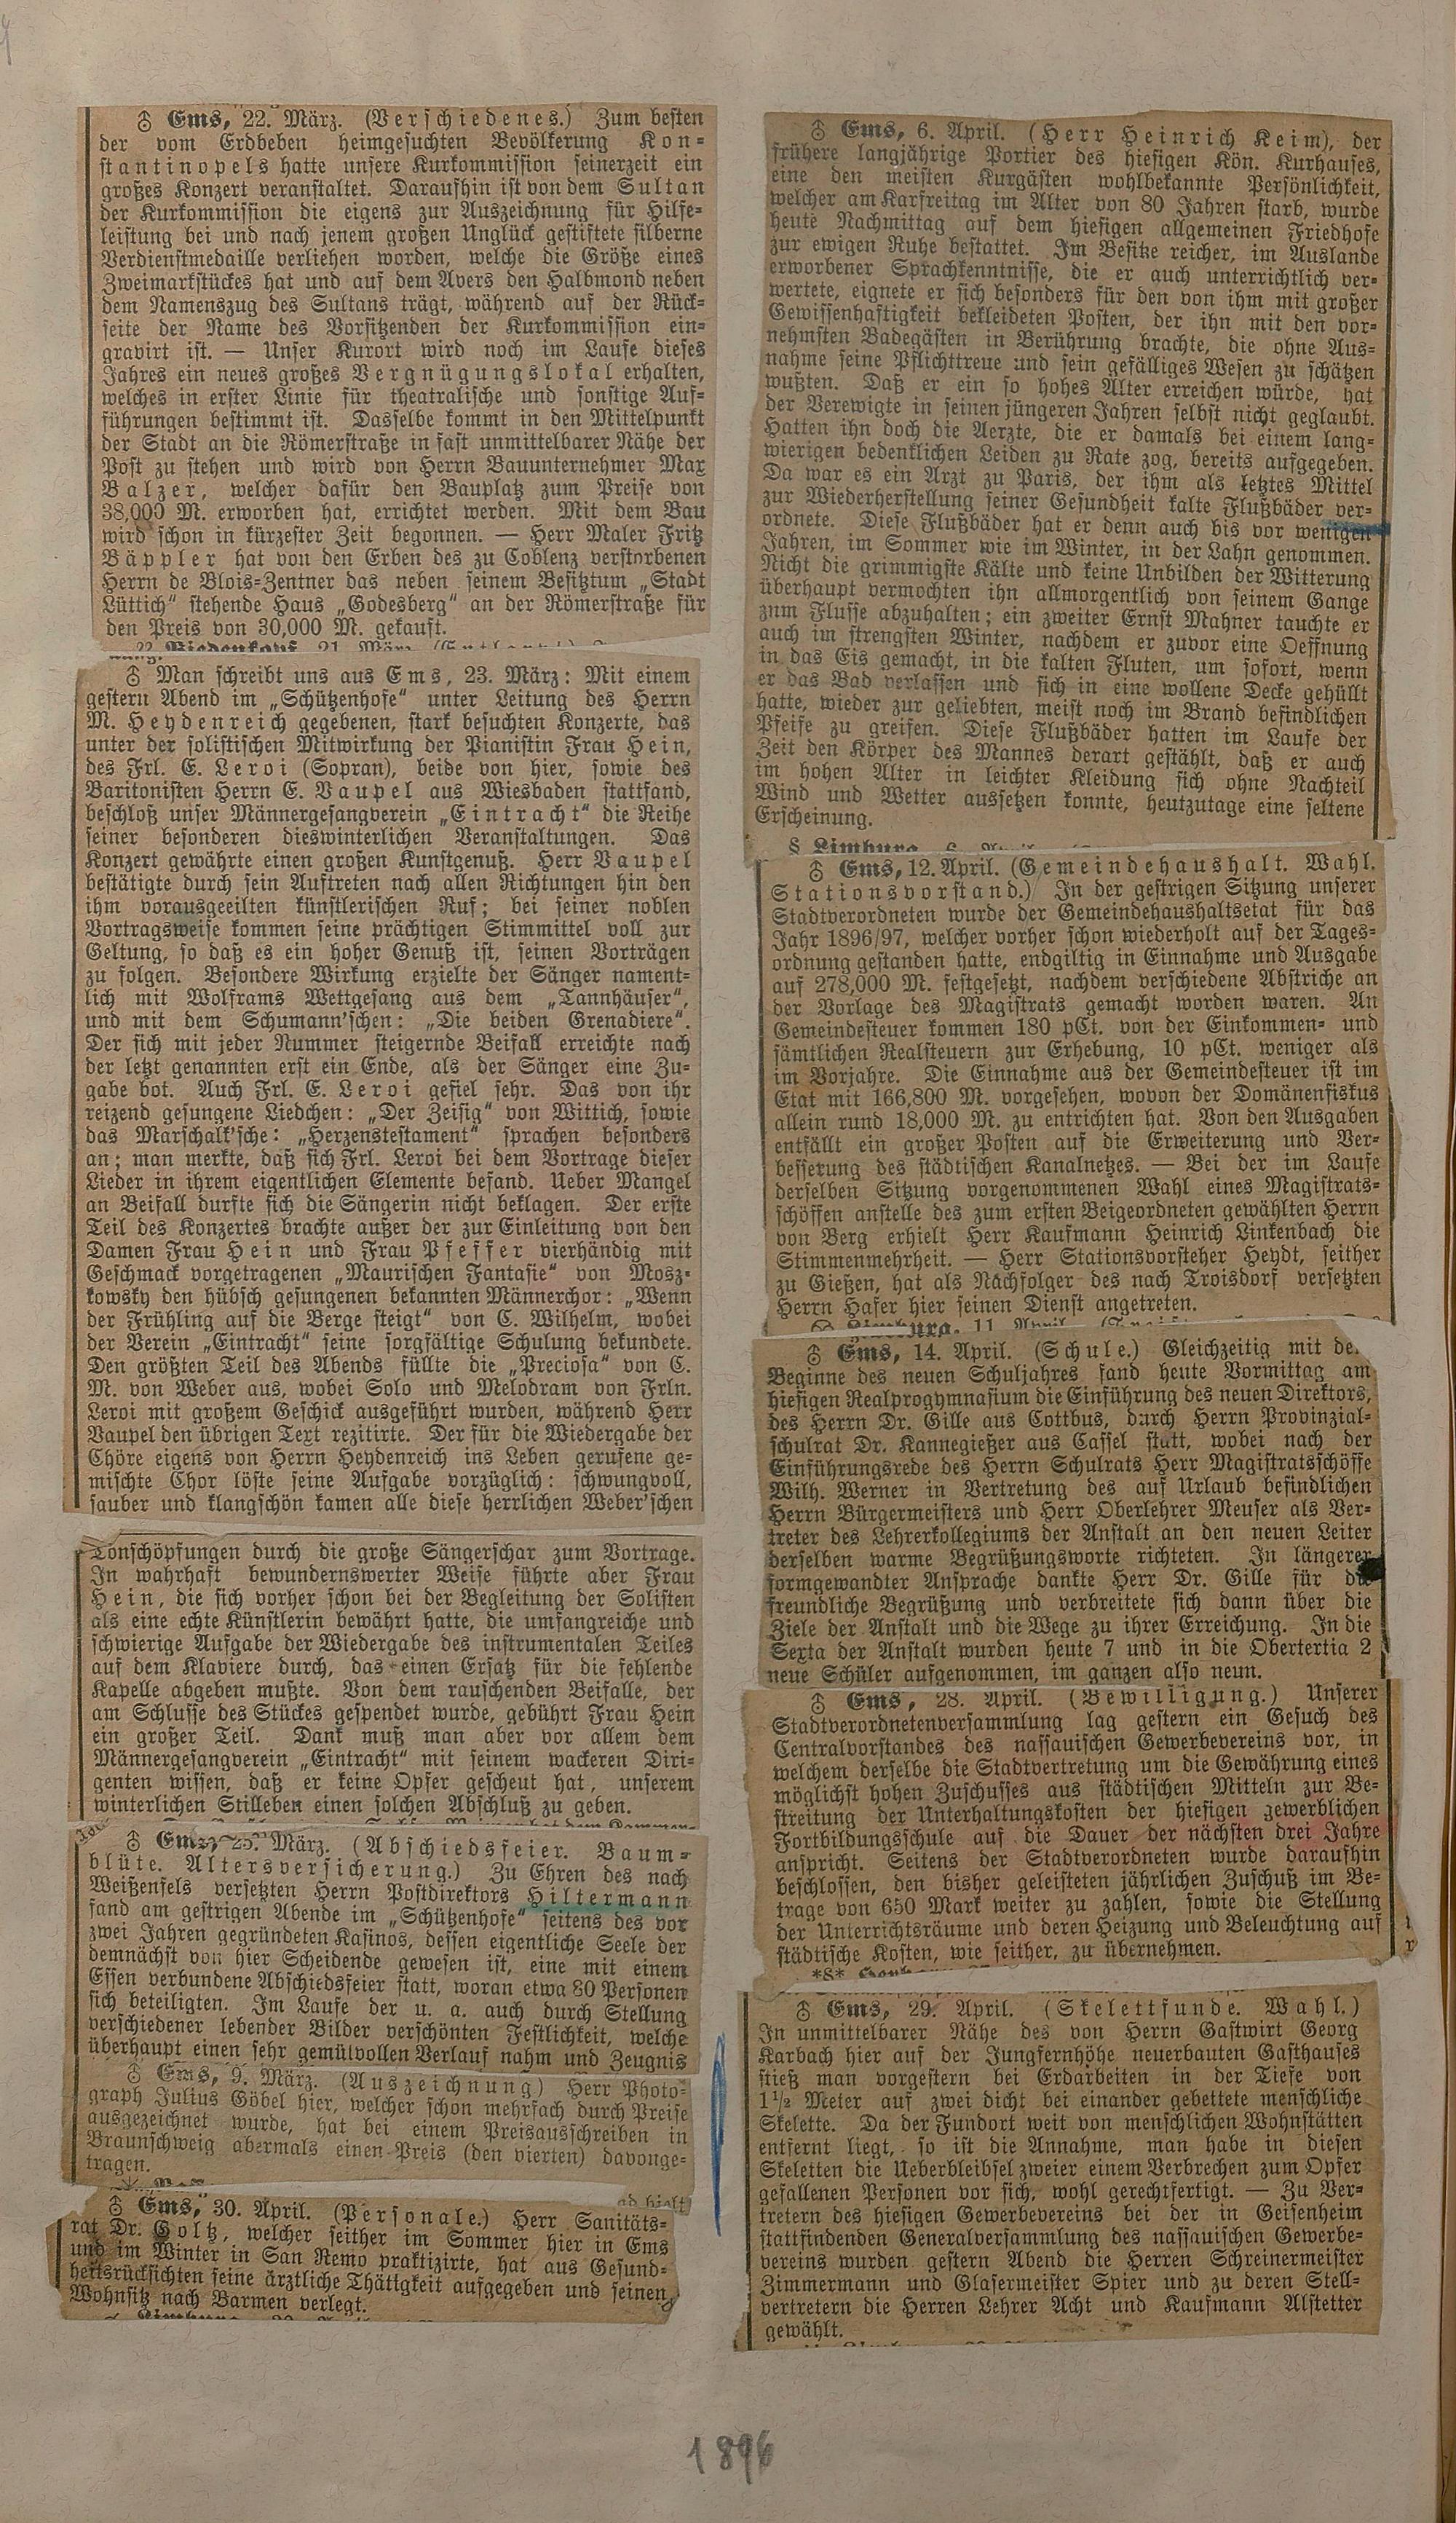 ♁ Ems, 22. März. (Verschiedenes.) Zum besten
der vom Erdbeben heimgesuchten Bevölkerung Kon-
stantinopels hatte unsere Kurkommission seinerzeit ein
großes Konzert veranstaltet. Daraufhin ist von dem Sultan
der Kurkommission die eigens zur Auszeichnung für Hilfe-
leistung bei und nach jenem großen Unglück gestiftete silberne
Verdienstmedaille verliehen worden, welche die Größe eines
Zweimarkstückes hat und auf dem Avers den Halbmond neben
dem Namenszug des Sultans trägt, während auf der Rück-
seite der Name des Vorsitzenden der Kurkommission ein-
gravirt ist. — Unser Kurort wird noch im Laufe dieses
Jahres ein neues großes Vergnügungslokal erhalten,
welches in erster Linie für theatralische und sonstige Auf-
führungen bestimmt ist. Dasselbe kommt in den Mittelpunkt
der Stadt an die Römerstraße in fast unmittelbarer Nähe der
Post zu stehen und wird von Herrn Bauunternehmer Max
Balzer, welcher dafür den Bauplatz zum Preise von
38,000 M. erworben hat, errichtet werden. Mit dem Bau
wird schon in kürzester Zeit begonnen. — Herr Maler Fritz
Bäppler hat von den Erben des zu Coblenz verstorbenen
Herrn de Blois-Zentner das neben seinem Besitztum „Stadt
Lüttich“ stehende Haus „Godesberg“ an der Römerstraße für
den Preis von 30,000 M. gekauft.
♁ Man schreibt uns aus Ems, 23. März: Mit einem
gestern Abend im „Schützenhofe“ unter Leitung des Herrn
M. Heydenreich gegebenen, stark besuchten Konzerte, das
unter der solistischen Mitwirkung der Pianistin Frau Hein,
des Frl. E. Leroi (Sopran), beide von hier, sowie des
Baritonisten Herrn E. Vaupel aus Wiesbaden stattfand,
beschloß unser Männergesangverein „Eintracht“ die Reihe
seiner besonderen dieswinterlichen Veranstaltungen. Das
Konzert gewährte einen großen Kunstgenuß. Herr Vaupel
bestätigte durch sein Auftreten nach allen Richtungen hin den
ihm vorausgeeilten künstlerischen Ruf; bei seiner noblen
Vortragsweise kommen seine prächtigen Stimmittel voll zur
Geltung, so daß es ein hoher Genuß ist, seinen Vorträgen
zu folgen. Besondere Wirkung erzielte der Sänger nament-
lich mit Wolframs Wettgesang aus dem „Tannhäuser“,
und mit dem Schumann'schen: „Die beiden Grenadiere“.
Der sich mit jeder Nummer steigernde Beifall erreichte nach
der letzt genannten erst ein Ende, als der Sänger eine Zu-
gabe bot. Auch Frl. E. Leroi gefiel sehr. Das von ihr
reizend gesungene Liedchen: „Der Zeisig“ von Wittich, sowie
das Marschalk'sche: „Herzenstestament“ sprachen besonders
an; man merkte, daß sich Frl. Leroi bei dem Vortrage dieser
Lieder in ihrem eigentlichen Elemente befand. Ueber Mangel
an Beifall durfte sich die Sängerin nicht beklagen. Der erste
Teil des Konzertes brachte außer der zur Einleitung von den
Damen Frau Hein und Frau Pfeffer vierhändig mit
Geschmack vorgetragenen „Maurischen Fantasie“ von Mosz-
kowsky den hübsch gesungenen bekannten Männerchor: „Wenn
der Frühling auf die Berge steigt“ von C. Wilhelm, wobei
der Verein „Eintracht“ seine sorgfältige Schulung bekundete.
Den größten Teil des Abends füllte die „Preciosa“ von C.
M. von Weber aus, wobei Solo und Melodram von Frln.
Leroi mit großem Geschick ausgeführt wurden, während Herr
Vaupel den übrigen Text rezitirte. Der für die Wiedergabe der
Chöre eigens von Herrn Heydenreich ins Leben gerufene ge-
mischte Chor löste seine Aufgabe vorzüglich: schwungvoll,
sauber und klangschön kamen alle diese herrlichen Weber'schen
Tonschöpfungen durch die große Sängerschar zum Vortrage.
In wahrhaft bewundernswerter Weise führte aber Frau
Hein, die sich vorher schon bei der Begleitung der Solisten
als eine echte Künstlerin bewährt hatte, die umfangreiche und
schwierige Aufgabe der Wiedergabe des instrumentalen Teiles
auf dem Klaviere durch, das einen Ersatz für die fehlende
Kapelle abgeben mußte. Von dem rauschenden Beifalle, der
am Schlusse des Stückes gespendet wurde, gebührt Frau Hein
ein großer Teil. Dank muß man aber vor allem dem
Männergesangverein „Eintracht“ mit seinem wackeren Diri-
genten wissen, daß er keine Opfer gescheut hat, unserem
winterlichen Stilleben einen solchen Abschluß zu geben.
♁ Ems, 25. März. (Abschiedsfeier. Baum-
blüte. Altersversicherung.) Zu Ehren des nach
Weißenfels versetzten Herrn Postdirektors Hiltermann
fand am gestrigen Abende im „Schützenhofe“ seitens des vor
zwei Jahren gegründeten Kasinos, dessen eigentliche Seele der
demnächst von hier Scheidende gewesen ist, eine mit einem
Essen verbundene Abschiedsfeier statt, woran etwa 80 Personen
sich beteiligten. Im Laufe der u. a. auch durch Stellung
verschiedener lebender Bilder verschönten Festlichkeit, welche
überhaupt einen sehr gemütvollen Verlauf nahm und Zeugnis
♁ Ems, 9. März. (Auszeichnung) Herr Photo-
graph Julius Göbel hier, welcher schon mehrfach durch Preise
ausgezeichnet wurde, hat bei einem Preisausschreiben in
Braunschweig abermals einen Preis (den vierten) davonge-
tragen.
♁ Ems, 30. April. (Personale.) Herr Sanitäts-
rat Dr. Goltz, welcher seither im Sommer hier in Ems
und im Winter in San Remo praktizirte, hat aus Gesund-
heitsrücksichten seine ärztliche Thätigkeit aufgegeben und seinen
Wohnsitz nach Barmen verlegt.
♁ Ems, 6. April. (Herr Heinrich Keim), der
frühere langjährige Portier des hiesigen Kön. Kurhauses,
eine den meisten Kurgästen wohlbekannte Persönlichkeit,
welcher am Karfreitag im Alter von 80 Jahren starb, wurde
heute Nachmittag auf dem hiesigen allgemeinen Friedhofe
zur ewigen Ruhe bestattet. Im Besitze reicher, im Auslande
erworbener Sprachkenntnisse, die er auch unterrichtlich ver-
wertete, eignete er sich besonders für den von ihm mit großer
Gewissenhaftigkeit bekleideten Posten, der ihn mit den vor-
nehmsten Badegästen in Berührung brachte, die ohne Aus-
nahme seine Pflichttreue und sein gefälliges Wesen zu schätzen
wußten. Daß er ein so hohes Alter erreichen würde, hat
der Verewigte in seinen jüngeren Jahren selbst nicht geglaubt.
Hatten ihn doch die Aerzte, die er damals bei einem lang-
wierigen bedenklichen Leiden zu Rate zog, bereits aufgegeben.
Da war es ein Arzt zu Paris, der ihm als letztes Mittel
zur Wiederherstellung seiner Gesundheit kalte Flußbäder ver-
ordnete. Diese Flußbäder hat er denn auch bis vor wenigen
Jahren, im Sommer wie im Winter, in der Lahn genommen.
Nicht die grimmigste Kälte und keine Unbilden der Witterung
überhaupt vermochten ihn allmorgentlich von seinem Gange
zum Flusse abzuhalten; ein zweiter Ernst Mahner tauchte er
auch im strengsten Winter, nachdem er zuvor eine Oeffnung
in das Eis gemacht, in die kalten Fluten, um sofort, wenn
er das Bad verlassen und sich in eine wollene Decke gehüllt
hatte, wieder zur geliebten, meist noch im Brand befindlichen
Pfeife zu greifen. Diese Flußbäder hatten im Laufe der
Zeit den Körper des Mannes derart gestählt, daß er auch
im hohen Alter in leichter Kleidung sich ohne Nachteil
Wind und Wetter aussetzen konnte, heutzutage eine seltene
Erscheinung.
♁ Ems, 12. April. (Gemeindehaushalt. Wahl.
Stationsvorstand.) In der gestrigen Sitzung unserer
Stadtverordneten wurde der Gemeindehaushaltsetat für das
Jahr 1896/97, welcher vorher schon wiederholt auf der Tages-
ordnung gestanden hatte, endgiltig in Einnahme und Ausgabe
auf 278,000 M. festgesetzt, nachdem verschiedene Abstriche an
der Vorlage des Magistrats gemacht worden waren. An
Gemeindesteuer kommen 180 pCt. von der Einkommen- und
sämtlichen Realsteuern zur Erhebung, 10 pCt. weniger als
im Vorjahre. Die Einnahme aus der Gemeindesteuer ist im
Etat mit 166,800 M. vorgesehen, wovon der Domänenfiskus
allein rund 18,000 M. zu entrichten hat. Von den Ausgaben
entfällt ein großer Posten auf die Erweiterung und Ver-
besserung des städtischen Kanalnetzes. — Bei der im Laufe
derselben Sitzung vorgenommenen Wahl eines Magistrats-
schöffen anstelle des zum ersten Beigeordneten gewählten Herrn
von Berg erhielt Herr Kaufmann Heinrich Linkenbach die
Stimmenmehrheit. — Herr Stationsvorsteher Heydt, seither
zu Gießen, hat als Nachfolger des nach Troisdorf versetzten
Herrn Hafer hier seinen Dienst angetreten.
♁ Ems, 14. April. (Schule.) Gleichzeitig mit de
Beginne des neuen Schuljahres fand heute Vormittag am
hiesigen Realprogymnasium die Einführung des neuen Direktors,
des Herrn Dr. Gille aus Cottbus, durch Herrn Provinzial-
schulrat Dr. Kannegießer aus Cassel statt, wobei nach der
Einführungsrede des Herrn Schulrats Herr Magistratsschöffe
Wilh. Werner in Vertretung des auf Urlaub befindlichen
Herrn Bürgermeisters und Herr Oberlehrer Meuser als Ver-
treter des Lehrerkollegiums der Anstalt an den neuen Leiter
derselben warme Begrüßungsworte richteten. In längerer
formgewandter Ansprache dankte Herr Dr. Gille für die
freundliche Begrüßung und verbreitete sich dann über die
Ziele der Anstalt und die Wege zu ihrer Erreichung. In die
Sexta der Anstalt wurden heute 7 und in die Obertertia 2
neue Schüler aufgenommen, im ganzen also neun.
♁ Ems, 28. April. (Bewilligung.) Unserer
Stadtverordnetenversammlung lag gestern ein Gesuch des
Centralvorstandes des nassauischen Gewerbevereins vor, in
welchem derselbe die Stadtvertretung um die Gewährung eines
möglichst hohen Zuschusses aus städtischen Mitteln zur Be-
streitung der Unterhaltungskosten der hiesigen gewerblichen
Fortbildungsschule auf die Dauer der nächsten drei Jahre
anspricht. Seitens der Stadtverordneten wurde daraufhin
beschlossen, den bisher geleisteten jährlichen Zuschuß im Be-
trage von 650 Mark weiter zu zahlen, sowie die Stellung
der Unterrichtsräume und deren Heizung und Beleuchtung auf
städtische Kosten, wie seither, zu übernehmen.
♁ Ems, 29. April. (Skelettfunde. Wahl.)
In unmittelbarer Nähe des von Herrn Gastwirt Georg
Karbach hier auf der Jungfernhöhe neuerbauten Gasthauses
stieß man vorgestern bei Erdarbeiten in der Tiefe von
1½ Meter auf zwei dicht bei einander gebettete menschliche
Skelette. Da der Fundort weit von menschlichen Wohnstätten
entfernt liegt, so ist die Annahme, man habe in diesen
Skeletten die Ueberbleibsel zweier einem Verbrechen zum Opfer
gefallenen Personen vor sich, wohl gerechtfertigt. — Zu Ver-
tretern des hiesigen Gewerbevereins bei der in Geisenheim
stattfindenden Generalversammlung des nassauischen Gewerbe-
vereins wurden gestern Abend die Herren Schreinermeister
Zimmermann und Glasermeister Spier und zu deren Stell-
vertretern die Herren Lehrer Acht und Kaufmann Alstetter
gewählt.
1896